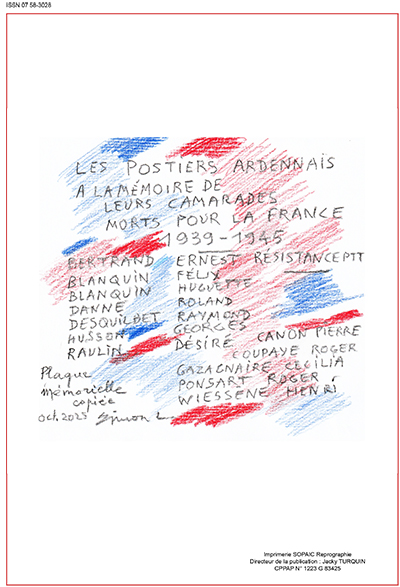 ISSN 07 58-3028
LES POSTIERS ARDENNAIS
A LA MÉMOIRE DE
LEURS CAMARADES
MORTS POUR LA FRANCE
1939-1945
BERTRAND ERNEST RESISTANCE PTT
BLANQUIN FÉLIX
BLANQUIN HUGUETTE
DANNE ROLAND
DESQUILBET RAYMOND
HUSSON GEORGES
RAULIN DÉSIRÉ
CANON PIERRE
COUPAYE ROGER
GAZAGNAIRE CECILIA
PONSART ROGER
WIESSENE HENRI
Plaque
mémorielle
copiée
oct. 2023 Simon L.
Imprimerie SOPAIC Reprographie
Directeur de la publication : Jacky TURQUIN
CPPAP N° 1223 G 83425